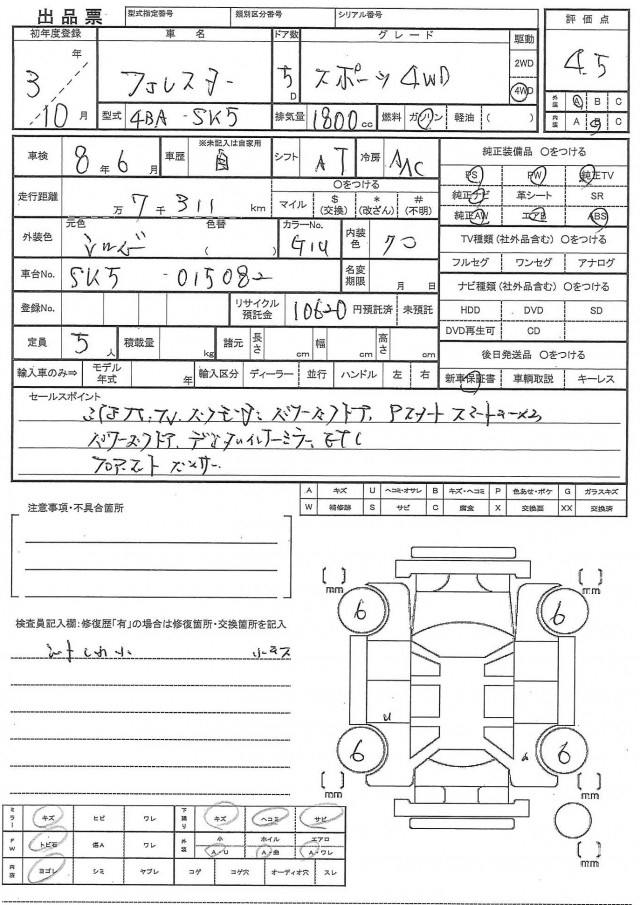 出品票 型式指定番号 類別区分番号 シリアル番号
評価点
4.5
初年度登録 車名 ドア数 グレード 駆動
3年 10月 フォレスター 5D スポーツ 4WD
2WD
4WD
型式 4BA-SK5 排気量 1800cc 燃料 ガソリン・軽油・( )
外装 A B C
内装 A B C
車検 8年6月 車歴 ※未記入は自家用 自 シフト AT 冷房 AAC
純正装備品 ○をつける
PS PW 純正TV
走行距離 万 7千 311 km
○をつける
マイル $(交換) *(改ざん) #(不明)
純正ナビ 革シート SR
純正AW エアB ABS
外装色 元色 色替 ( ) カラーNo. G1U 内装色 クロ
TV種類(社外品含む) ○をつける
フルセグ ワンセグ アナログ
車台No. SK5 -015082 名変期限 月 日
ナビ種類(社外品含む) ○をつける
登録No. リサイクル預託金 10620 円預託済 未預託
HDD DVD SD
DVD再生可 CD
定員 5人 積載量 kg 諸元 長さ cm 幅 cm 高さ cm
後日発送品 ○をつける
輸入車のみ⇒ モデル年式 年 輸入区分 ディーラー 並行 ハンドル 左 右
新車保証書 車輌取説 キーレス
セールスポイント
パワーバックドア、デジタルインナーミラー、ETC
A キズ U ヘコミ・オサレ B キズ・ヘコミ P 色あせ・ボケ G ガラスキズ
W 補修跡 S サビ C 腐食 X 交換要 XX 交換済
注意事項・不具合箇所
検査員記入欄:修復歴「有」の場合は修復箇所・交換箇所を記入
シートしわ小 小キズ
[ ]mm [ ]mm
6 6
U A
6 6
[ ]mm [ ]mm
[ ]mm
ミラー キズ ヒビ ワレ 下廻り キズ ヘコミ サビ
FW トビ石 傷A ワレ 外装 小A・U ホイルA・曲 エアロA・ワレ
内装 ヨゴレ シミ ヤブレ コゲ コゲ穴 オーディオ穴 スレ